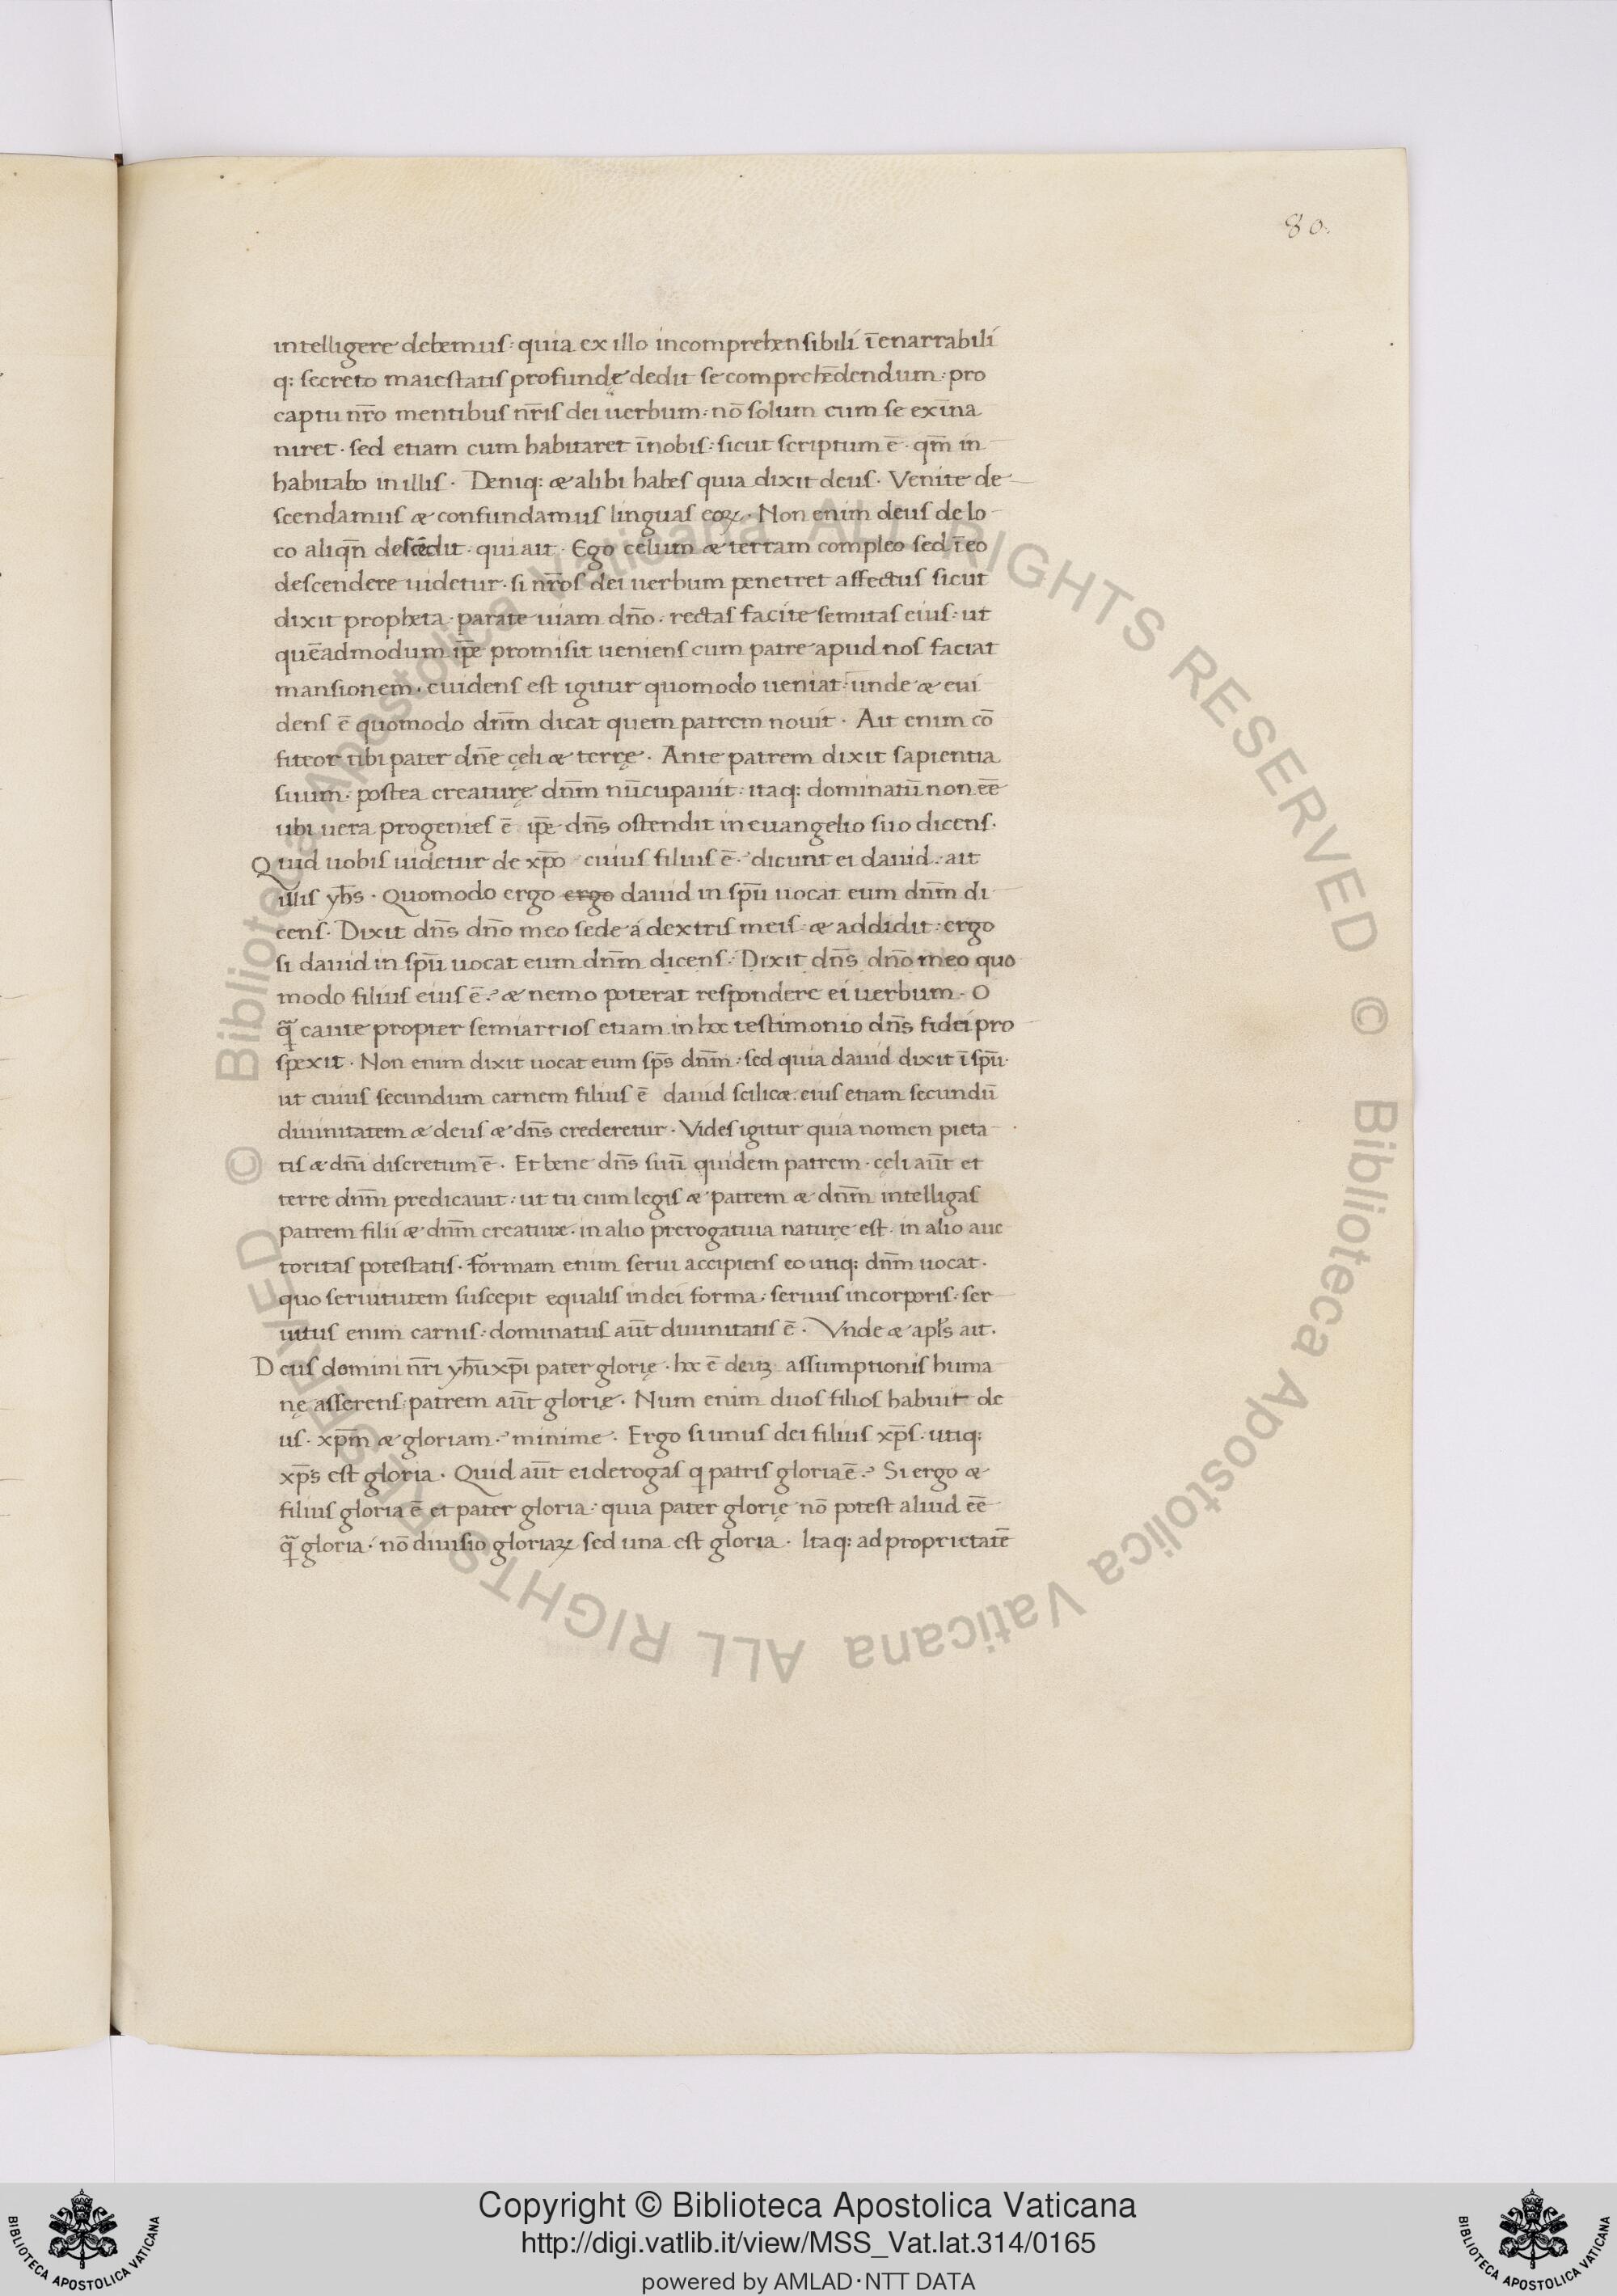 80.
intelligere debemus: quia ex illo incomprehensibili īenarrabili
q: secreto maiestatis profundę dedit se comprehēdendum: pro
captu nr̄o mentibus nr̄is dei uerbum: nō solum cum se exīna
niret · sed etiam cum habitaret īnobis: sicut scriptum ē · qm̄ in
habitabo in illis · Deniq: æ alibi habes quia dixit deus · Venite de
scendamus æ confundamus linguas eoꝝ · Non enim deus de lo
co aliqn̄ descēdit · qui ait · Ego celum æ terram compleo sed ī eo
descendere uidetur · si nr̄os dei uerbum penetret affectus sicut
dixit propheta · parate uiam dn̄o · rectas facite semitas eius: ut
quēadmodum ip̄e promisit ueniens cum patre apud nos faciat
mansionem · euidens est igitur quomodo ueniat: unde æ eui
dens ē quomodo dn̄m dicat quem patrem nouit · Ait enim cō
fiteor tibi pater dn̄e cęli æ terrę · Ante patrem dixit sapientia
suum: postea creaturę dn̄m nūcupauit: itaq: dominatū non eē
ubi uera progenies ē ip̄e dn̄s ostendit in euangelio suo dicens ·
Quid uobis uidetur de xp̄o cuius filius ē? dicunt ei dauid: ait
illis yh̄s · Quomodo ergo ergo dauid in sp̄u uocat eum dn̄m di
cens · Dixit dn̄s dn̄o meo sede á dextris meis: æ addidit: ergo
si dauid in sp̄u uocat eum dn̄m dicens: Dixit dn̄s dn̄o meo quo
modo filius eius ē? æ nemo poterat respondere ei uerbum · O
q̄ꝫ caute propter semiarrios etiam in hoc testimonio dn̄s fidei pro
spexit · Non enim dixit uocat eum sp̄s dn̄m: sed quia dauid dixit ī sp̄u ·
ut cuius secundum carnem filius ē dauid scilicæ: eius etiam secundū
diuinitatem æ deus æ dn̄s crederetur · Vides igitur quia nomen pieta
tis æ dn̄i discretum ē · Et bene dn̄s suū quidem patrem · cęli aūt et
terre dn̄m predicauit: ut tu cum legis æ patrem æ dn̄m intelligas
patrem filii æ dn̄m creature · in alio prerogatiua naturę est · in alio auc
toritas potestatis · formam enim serui accipiens eo utiq: dn̄m uocat ·
quo seruitutem suscepit equalis in dei forma: seruus in corporis: ser
uitus enim carnis: dominatus aūt diuinitatis ē · Vnde æ apl̄s ait ·
Deus domini nr̄i yh̄u xp̄i pater glorię · hoc ē deuꝫ assumptionis huma
nę asserens: patrem aūt glorię · Num enim duos filios habuit de
us · xp̄m æ gloriam? minime · Ergo si unus dei filius xp̄s · utiq:
xp̄s est gloria · Quid aūt ei derogas q patris gloria ē? Si ergo æ
filius gloria ē et pater gloria: quia pater glorię nō potest aliud eē
q̄ꝫ gloria: nō diuisio gloriaꝝ sed una est gloria · Itaq: ad proprietatē
© Biblioteca Apostolica Vaticana ALL RIGHTS RESERVED © Biblioteca Apostolica Vaticana ALL RIGHTS RESERVED
Copyright © Biblioteca Apostolica Vaticana
http://digi.vatlib.it/view/MSS_Vat.lat.314/0165
powered by AMLAD·NTT DATA
BIBLIOTECA APOSTOLICA VATICANA
BIBLIOTECA APOSTOLICA VATICANA